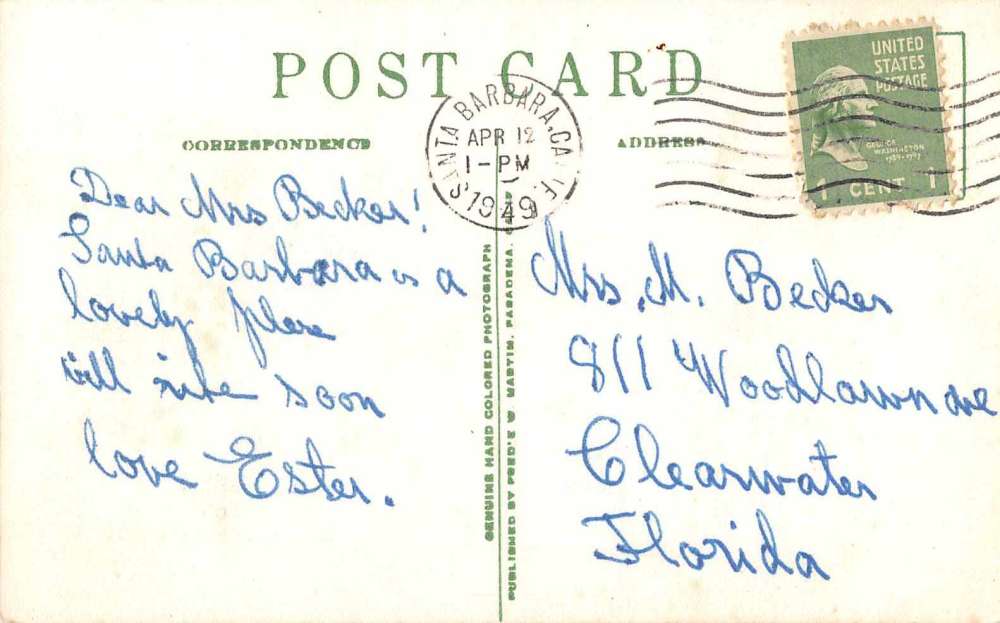 POST CARD
CORRESPONDENCE
ADDRESS
SANTA BARBARA, CALIF.
APR 12
1-PM
1949
UNITED
STATES
POSTAGE
GEORGE
WASHINGTON
1789-1797
1 CENT 1
Dear Mrs Becker!
Santa Barbara is a
lovely place
will soon
love Ester.
GENUINE HAND COLORED PHOTOGRAPH
PUBLISHED BY FRED'K W. MARTIN, PASADENA,
Mrs. M. Becker
811 Woodlawn ave
Clearwater
Florida